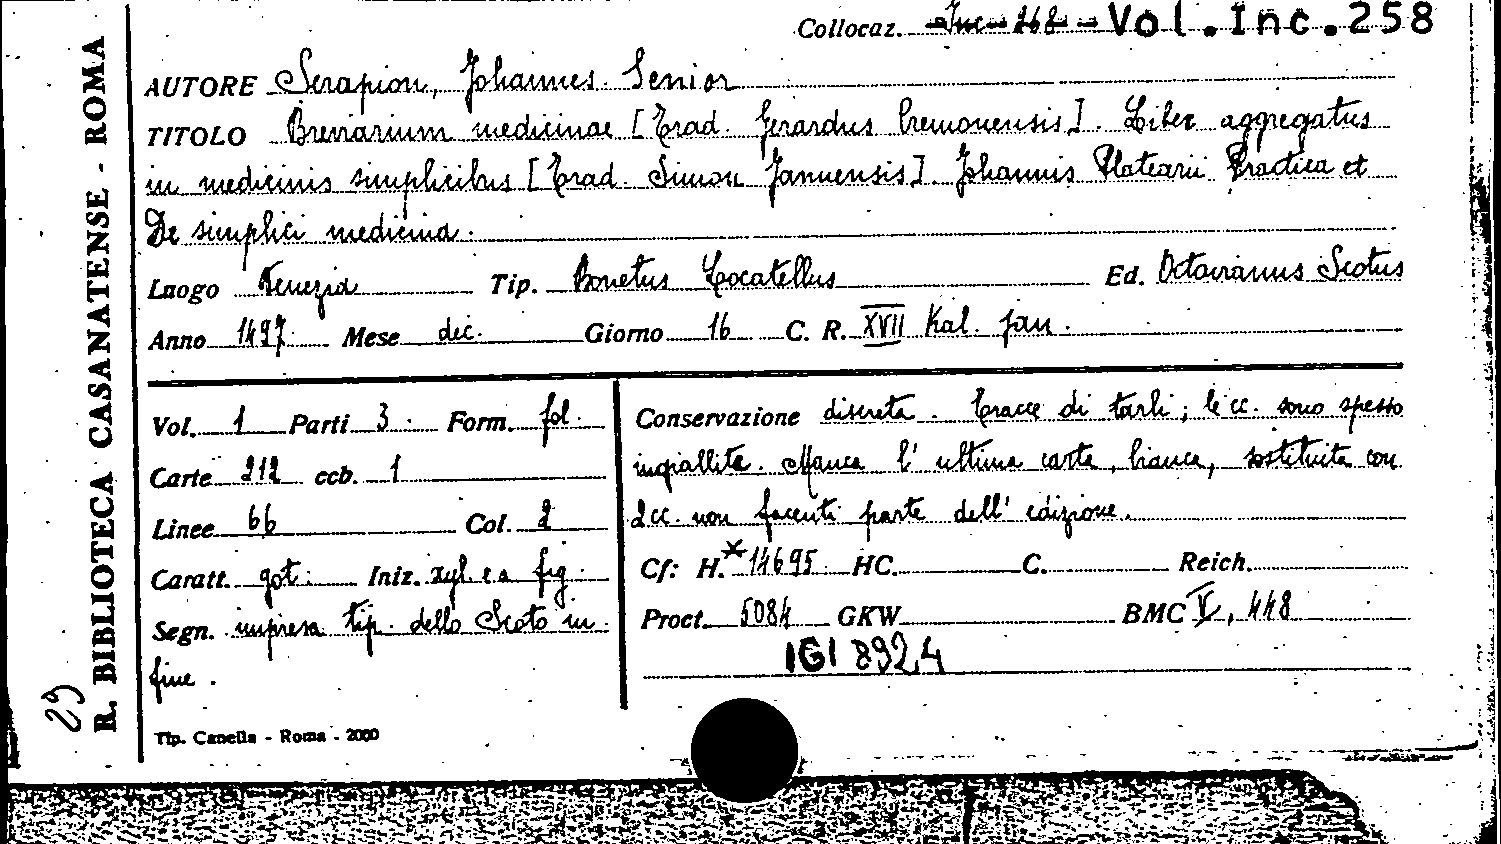 Collocaz. Inc 268 Vol.Inc.258
AUTORE Serapion, Johannes. Senior
TITOLO Breviarium medicinae [Trad. Gerardus Cremonensis]. Liber aggregatus
in medicinis simplicibus [Trad. Simon Januensis]. Johannis Platearii Practica et
De simplici medicina.
Luogo Venezia Tip. Bonetus Locatellus Ed. Octavianus Scotus
Anno 1497 Mese dic. Giorno 16 C. R. XVII Kal. Jan.
Vol. 1 Parti 3. Form. fol.
Carte 212 ccb. 1
Linee 66 Col. 2
Caratt. got. Iniz. xyl. e a fig.
Segn. impresa tip. dello Scoto in
fine.
Conservazione discreta. Tracce di tarli; le cc. sono spesso
ingiallite. Manca l'ultima carta, bianca, sostituita con
2 cc. non facenti parte dell'edizione.
Cf: H.* 14695 HC. C. Reich.
Proct. 5084 GKW BMC V, 448
IGI 8924
Tip. Canella - Roma - 2000
R. BIBLIOTECA CASANATENSE - ROMA
29